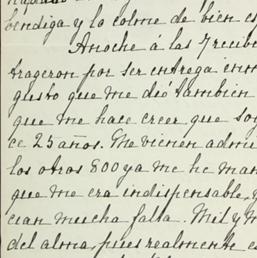 bendiga y la colme de bien es
Anoche á las 7 recibe
trageron por ser entrega inm
gusto que me dió tambien
que me hace creer que soy
ce 25 años. Me vienen admi
los otros 800 ya me he man
que me era indispensable, y
cian mucha falta. Mil y m
del alma, pues realmente es